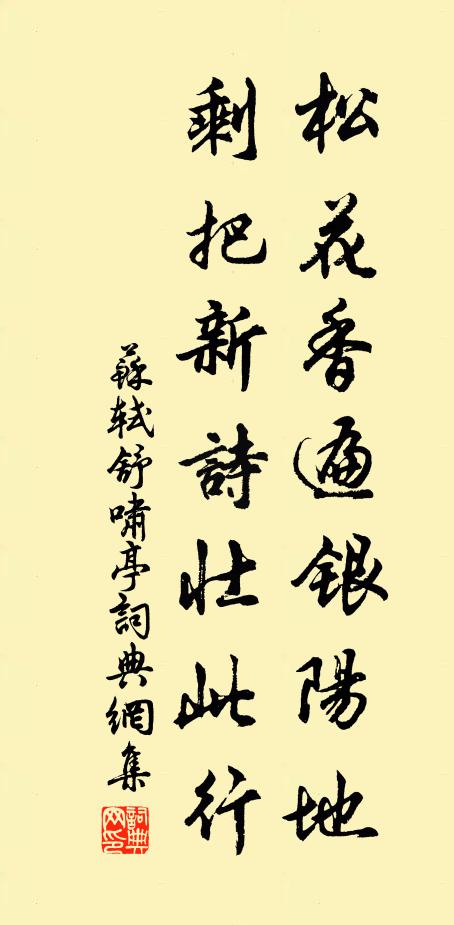 松花香遍銀陽地
剩把新詩壯此行
蘇軾舒嘯亭詞典網集
詞典網印